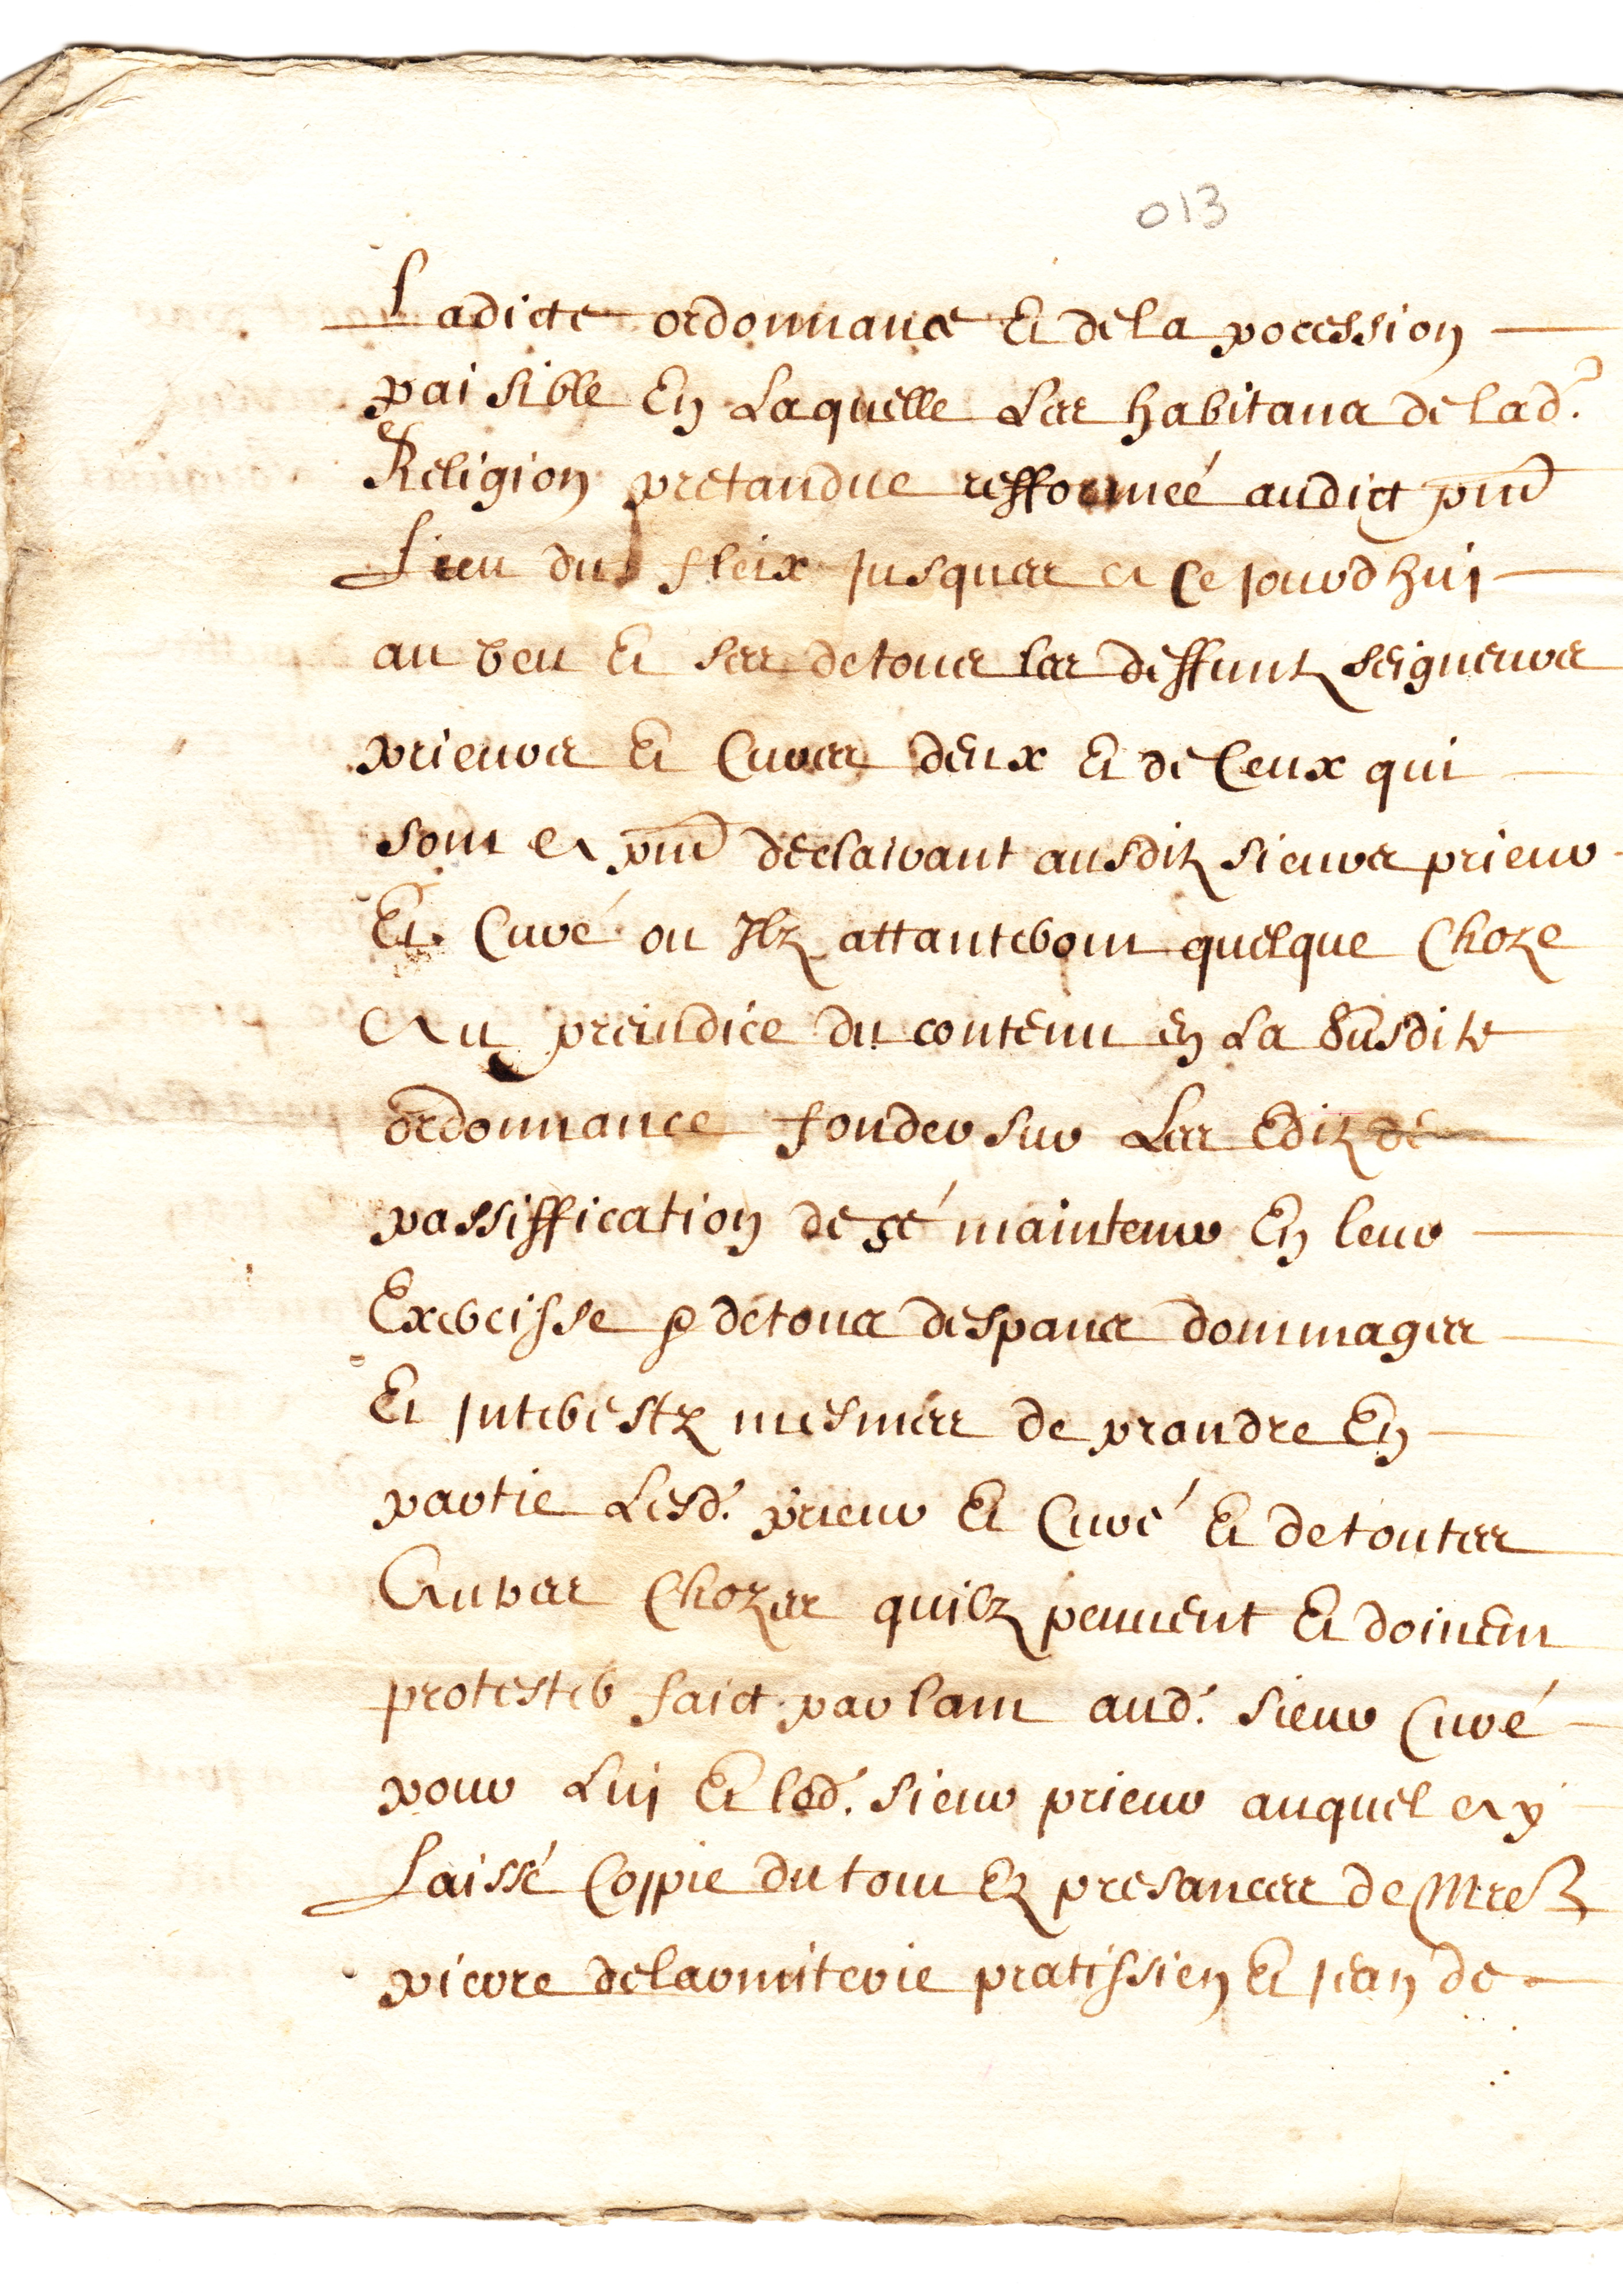 013
Ladicte ordonnance Et de la pocession
paisible En Laquelle Les habitans de lad.
Religion pretandue refformeé audict pnt
Lieu du fleix jusques a Ce jourdhuj
au veu Et sceu de tous les deffuntz seigneurs
prieurs Et Cures deux Et de Ceux qui
sont a pnt declairant ausditz sieurs prieur
Et Curé ou Ilz attanteront quelque Choze
Au preiudice du contenu en La susdite
ordonnance fonder sur Les Editz de
passiffication de sé maintenir En leur
Exercisse p de tous despans dommages
Et Interestz mesmes de prandre En
partie Lesd. prieur Et Curé Et de toutes
Autres Chozes quilz peuuent Et doiuent
protester faict parlant aud. sieur Curé
pour Lui Et led. sieur prieur auquel ay
Laissé Coppie du tout Ez presances de Mres
pierre delarmiterie pratissien Et jean de